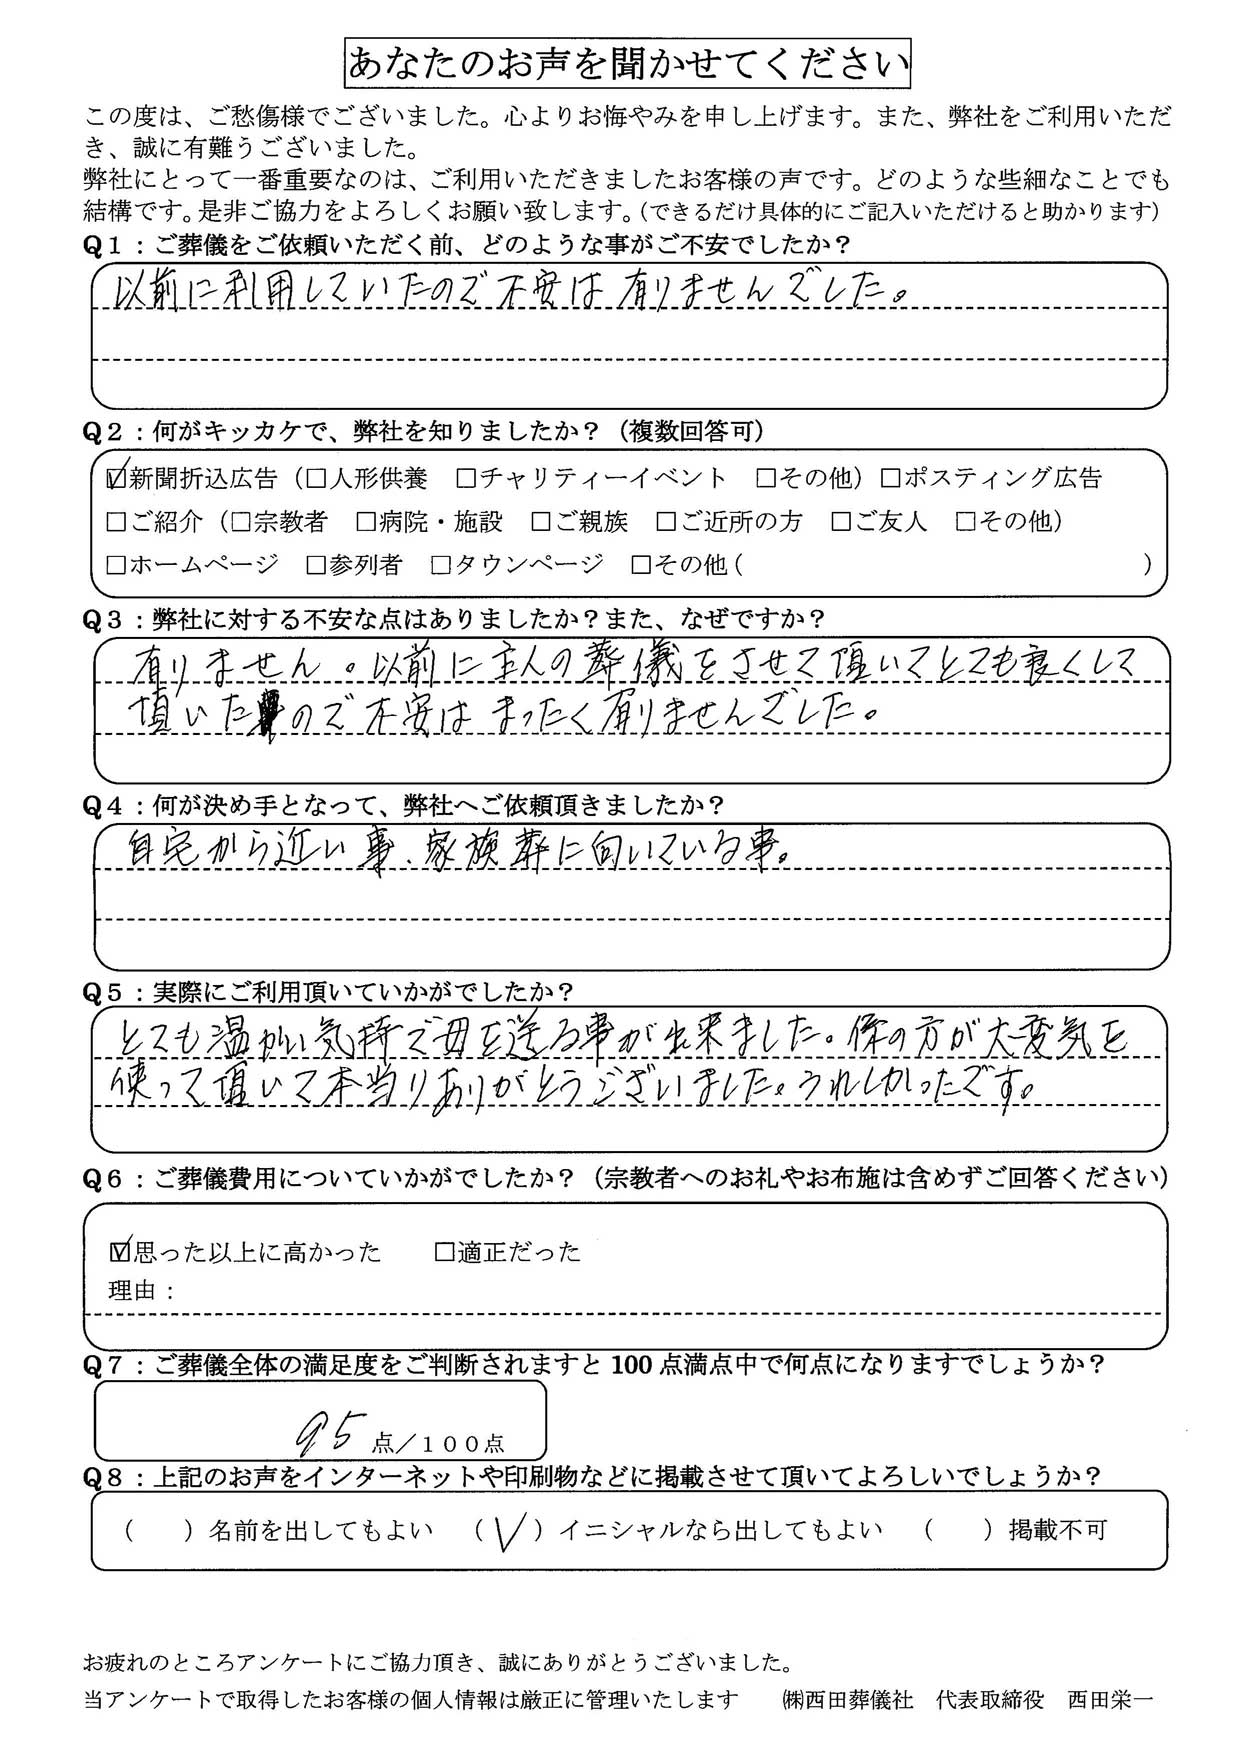 あなたのお声を聞かせてください
この度は、ご愁傷様でございました。心よりお悔やみを申し上げます。また、弊社をご利用いただ
き、誠に有難うございました。
弊社にとって一番重要なのは、ご利用いただきましたお客様の声です。どのような些細なことでも
結構です。是非ご協力をよろしくお願い致します。（できるだけ具体的にご記入いただけると助かります）
Q１：ご葬儀をご依頼いただく前、どのような事がご不安でしたか？
以前に利用していたので不安は有りませんでした。
Q２：何がキッカケで、弊社を知りましたか？（複数回答可）
☑新聞折込広告（□人形供養　□チャリティーイベント　□その他）□ポスティング広告
□ご紹介（□宗教者　□病院・施設　□ご親族　□ご近所の方　□ご友人　□その他）
□ホームページ　□参列者　□タウンページ　□その他（　　　　　　　　　　　　　　　　）
Q３：弊社に対する不安な点はありましたか？また、なぜですか？
有りません。以前に主人の葬儀をさせて頂いてとても良くして
頂いたので不安はまったく有りませんでした。
Q４：何が決め手となって、弊社へご依頼頂きましたか？
自宅から近い事、家族葬に向いている事。
Q５：実際にご利用頂いていかがでしたか？
とても温かい気持で母を送る事が出来ました。係の方が大変気を
使って頂いて本当りありがとうございました。うれしかったです。
Q６：ご葬儀費用についていかがでしたか？（宗教者へのお礼やお布施は含めずご回答ください）
☑思った以上に高かった　　□適正だった
理由：
Q７：ご葬儀全体の満足度をご判断されますと 100 点満点中で何点になりますでしょうか？
95 点／１００点
Q８：上記のお声をインターネットや印刷物などに掲載させて頂いてよろしいでしょうか？
（　　）名前を出してもよい　（✓）イニシャルなら出してもよい　（　　）掲載不可
お疲れのところアンケートにご協力頂き、誠にありがとうございました。
当アンケートで取得したお客様の個人情報は厳正に管理いたします　　㈱西田葬儀社　代表取締役　西田栄一